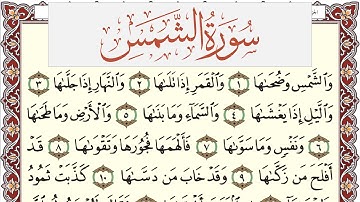 سُورَةُ الشَّمْسِ
وَالشَّمْسِ وَضُحَىٰهَا ١ وَالْقَمَرِ إِذَا تَلَىٰهَا ٢ وَالنَّهَارِ إِذَا جَلَّىٰهَا ٣
وَالَّيْلِ إِذَا يَغْشَىٰهَا ٤ وَالسَّمَاءِ وَمَا بَنَىٰهَا ٥ وَالْأَرْضِ وَمَا طَحَىٰهَا
٦ وَنَفْسٍ وَمَا سَوَّىٰهَا ٧ فَأَلْهَمَهَا فُجُورَهَا وَتَقْوَىٰهَا ٨ قَدْ
أَفْلَحَ مَن زَكَّىٰهَا ٩ وَقَدْ خَابَ مَن دَسَّىٰهَا ١٠ كَذَّبَتْ ثَمُودُ